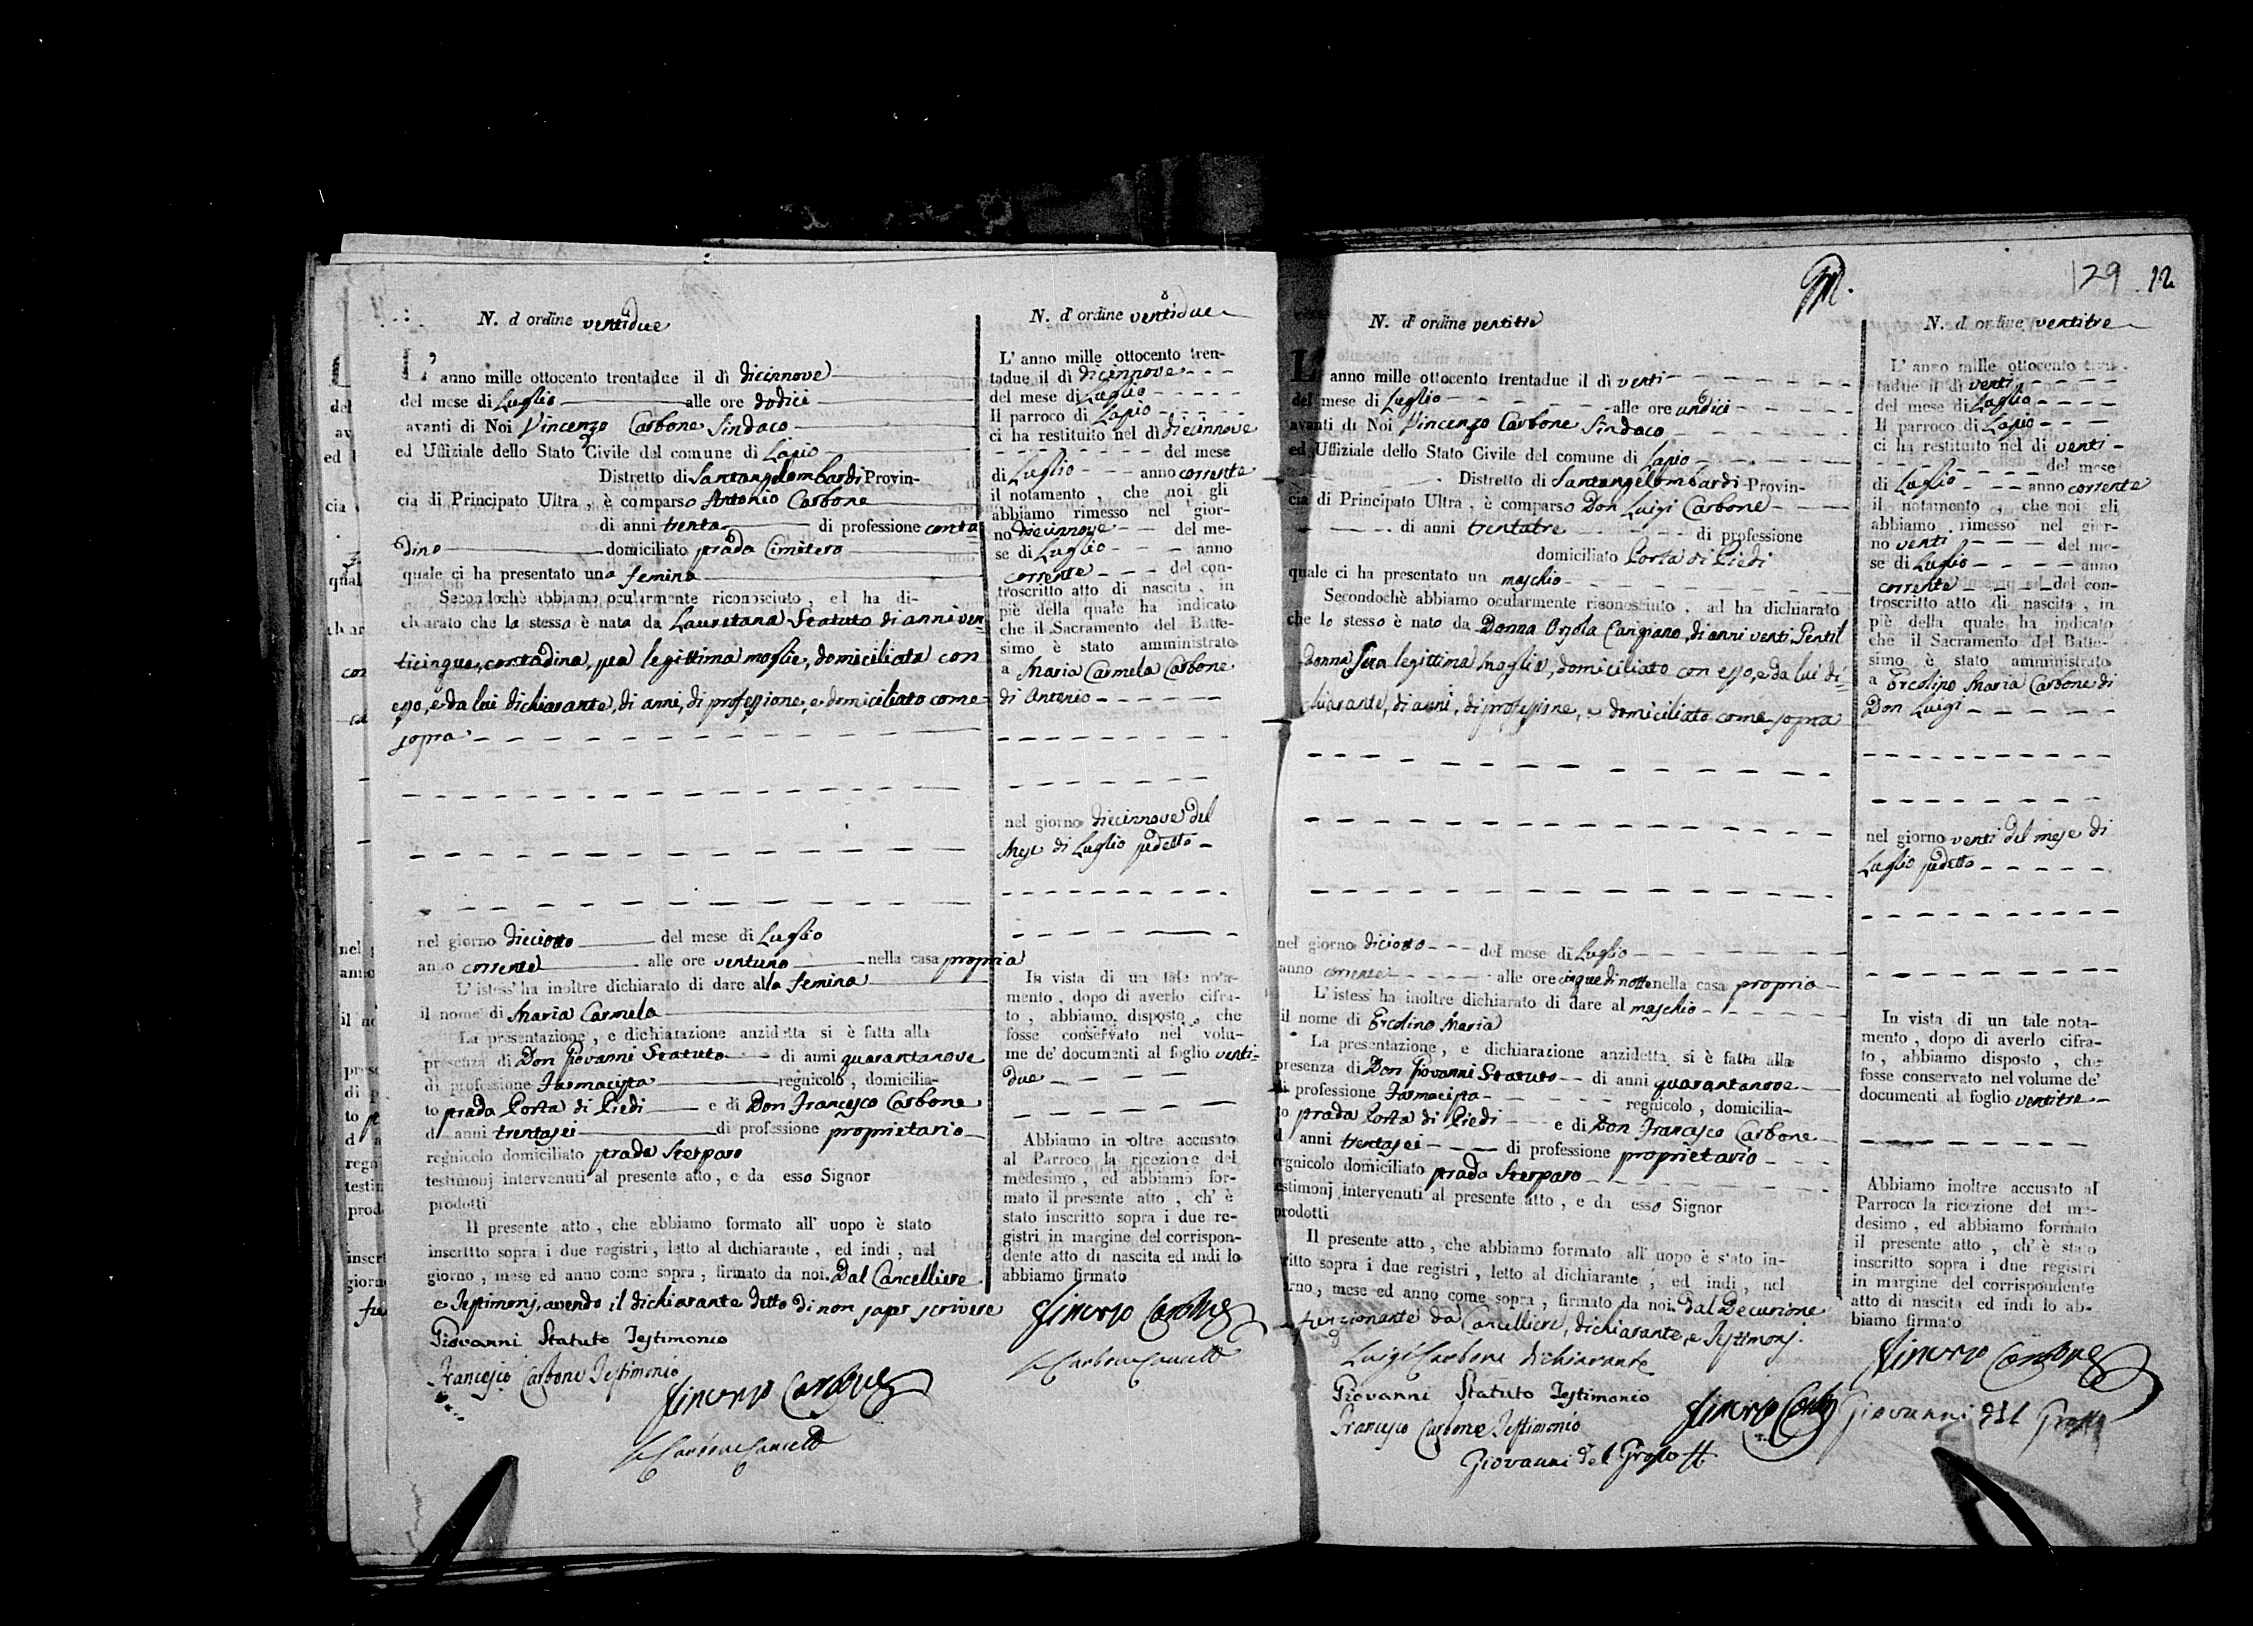 N. d'ordine ventidue
L'anno mille ottocento trentadue il dì diciennove
del mese di Luglio alle ore dodici
avanti di Noi Vincenzo Carbone Sindaco
ed Uffiziale dello Stato Civile del comune di Lapio
Distretto di Santangelombardi Provin-
cia di Principato Ultra, è comparso Antonio Carbone
di anni trenta di professione conta=
dino domiciliato prada Cimitero
quale ci ha presentato una femina
Secondochè abbiamo ocularmente riconosciuto, ed ha di-
chiarato che la stessa è nata da Lauretana Statuto di anni ven=
ticinque, contadina, sua legittima moglie, domiciliata con
esso, e da lui dichiarante, di anni, di professione, e domiciliato come
sopra
nel giorno dieciotto del mese di Luglio
anno corrente alle ore ventuno nella casa propria
L'istess' ha inoltre dichiarato di dare alla femina
il nome di Maria Carmela
La presentazione, e dichiarazione anzidetta si è fatta alla
presenza di Don Giovanni Statuto di anni quarantanove
di professione Farmacista regnicolo, domicilia-
to prada Porta di Piedi e di Don Francesco Carbone
di anni trentasei di professione proprietario
regnicolo domiciliato prada Sterparo
testimonj intervenuti al presente atto, e da esso Signor
prodotti
Il presente atto, che abbiamo formato all' uopo è stato
inscritto sopra i due registri, letto al dichiarante, ed indi, nel
giorno, mese ed anno come sopra, firmato da noi. Dal Cancelliere
e Testimonj, avendo il dichiarante detto di non saper scrivere
Giovanni Statuto Testimonio
Francesco Carbone Testimonio
Vincenzo Carbone
N. d'ordine ventidue
L'anno mille ottocento tren-
tadue il dì diciennove
del mese di Luglio
Il parroco di Lapio
ci ha restituito nel dì diecinnove
del mese
di Luglio anno corrente
il notamento, che noi gli
abbiamo rimesso nel gior-
no diecinnove del me-
se di Luglio anno
corrente del con-
troscritto atto di nascita, in
piè della quale ha indicato
che il Sacramento del Batte-
simo è stato amministrato
a Maria Carmela Carbone
di Antonio
nel giorno diecinnove del
Mese di Luglio sudetto
In vista di un tale nota-
mento, dopo di averlo cifra-
to, abbiamo disposto, che
fosse conservato nel volu-
me de' documenti al foglio venti=
due
Abbiamo in oltre accusato
al Parroco la ricezione del
medesimo, ed abbiamo for-
mato il presente atto, ch' è
stato inscritto sopra i due re-
gistri in margine del corrispon-
dente atto di nascita ed indi lo
abbiamo firmato
Vincenzo Carbone
129 12
N. d'ordine ventitre
L'anno mille ottocento trentadue il dì venti
del mese di Luglio alle ore undici
avanti di Noi Vincenzo Carbone Sindaco
ed Uffiziale dello Stato Civile del comune di Lapio
Distretto di Santangelombardi Provin-
cia di Principato Ultra, è comparso Don Luigi Carbone
di anni trentatre di professione
domiciliato Porta di Piedi
quale ci ha presentato un maschio
Secondochè abbiamo ocularmente riconosciuto, ad ha dichiarato
che lo stesso è nato da Donna Orsola Cangiano, di anni venti, Gentil
donna sua legittima moglie, domiciliato con esso, e da lui di=
chiarante, di anni, di professione, e domiciliato come sopra
nel giorno diciotto del mese di Luglio
anno corrente alle ore cinque di notte nella casa propria
L'istess' ha inoltre dichiarato di dare al maschio
il nome di Ercolino Maria
La presentazione, e dichiarazione anzidetta si è fatta alla
presenza di Don Giovanni Statuto di anni quarantanove
di professione Farmacista regnicolo, domicilia-
to prada Porta di Piedi e di Don Francesco Carbone
di anni trentasei di professione proprietario
regnicolo domiciliato prada Sterparo
testimonj intervenuti al presente atto, e da esso Signor
prodotti
Il presente atto, che abbiamo formato all' uopo è stato in-
ritto sopra i due registri, letto al dichiarante, ed indi, nel
rno, mese ed anno come sopra, firmato da noi. Dal Decurione
funzionante da Cancelliere, dichiarante, e Testimonj.
Luigi Carbone dichiarante
Giovanni Statuto Testimonio
Francesco Carbone Testimonio
Vincenzo Carbone
Giovanni del Grosso
N. d'ordine ventitre
L'anno mille ottocento tren-
tadue il dì venti
del mese di Luglio
Il parroco di Lapio
ci ha restituito nel dì venti
del mese
di Luglio anno corrente
il notamento, che noi gli
abbiamo rimesso nel gior-
no venti del me-
se di Luglio anno
corrente del con-
troscritto atto di nascita, in
piè della quale ha indicato
che il Sacramento del Batte-
simo è stato amministrato
a Ercolino Maria Carbone di
Don Luigi
nel giorno venti del mese di
Luglio sudetto
In vista di un tale nota-
mento, dopo di averlo cifra-
to, abbiamo disposto, che
fosse conservato nel volume de'
documenti al foglio ventitre
Abbiamo inoltre accusato al
Parroco la ricezione del me-
desimo, ed abbiamo formato
il presente atto, ch' è stato
inscritto sopra i due registri
in margine del corrispondente
atto di nascita ed indi lo ab-
biamo firmato
Vincenzo Carbone
Giovanni del Grosso